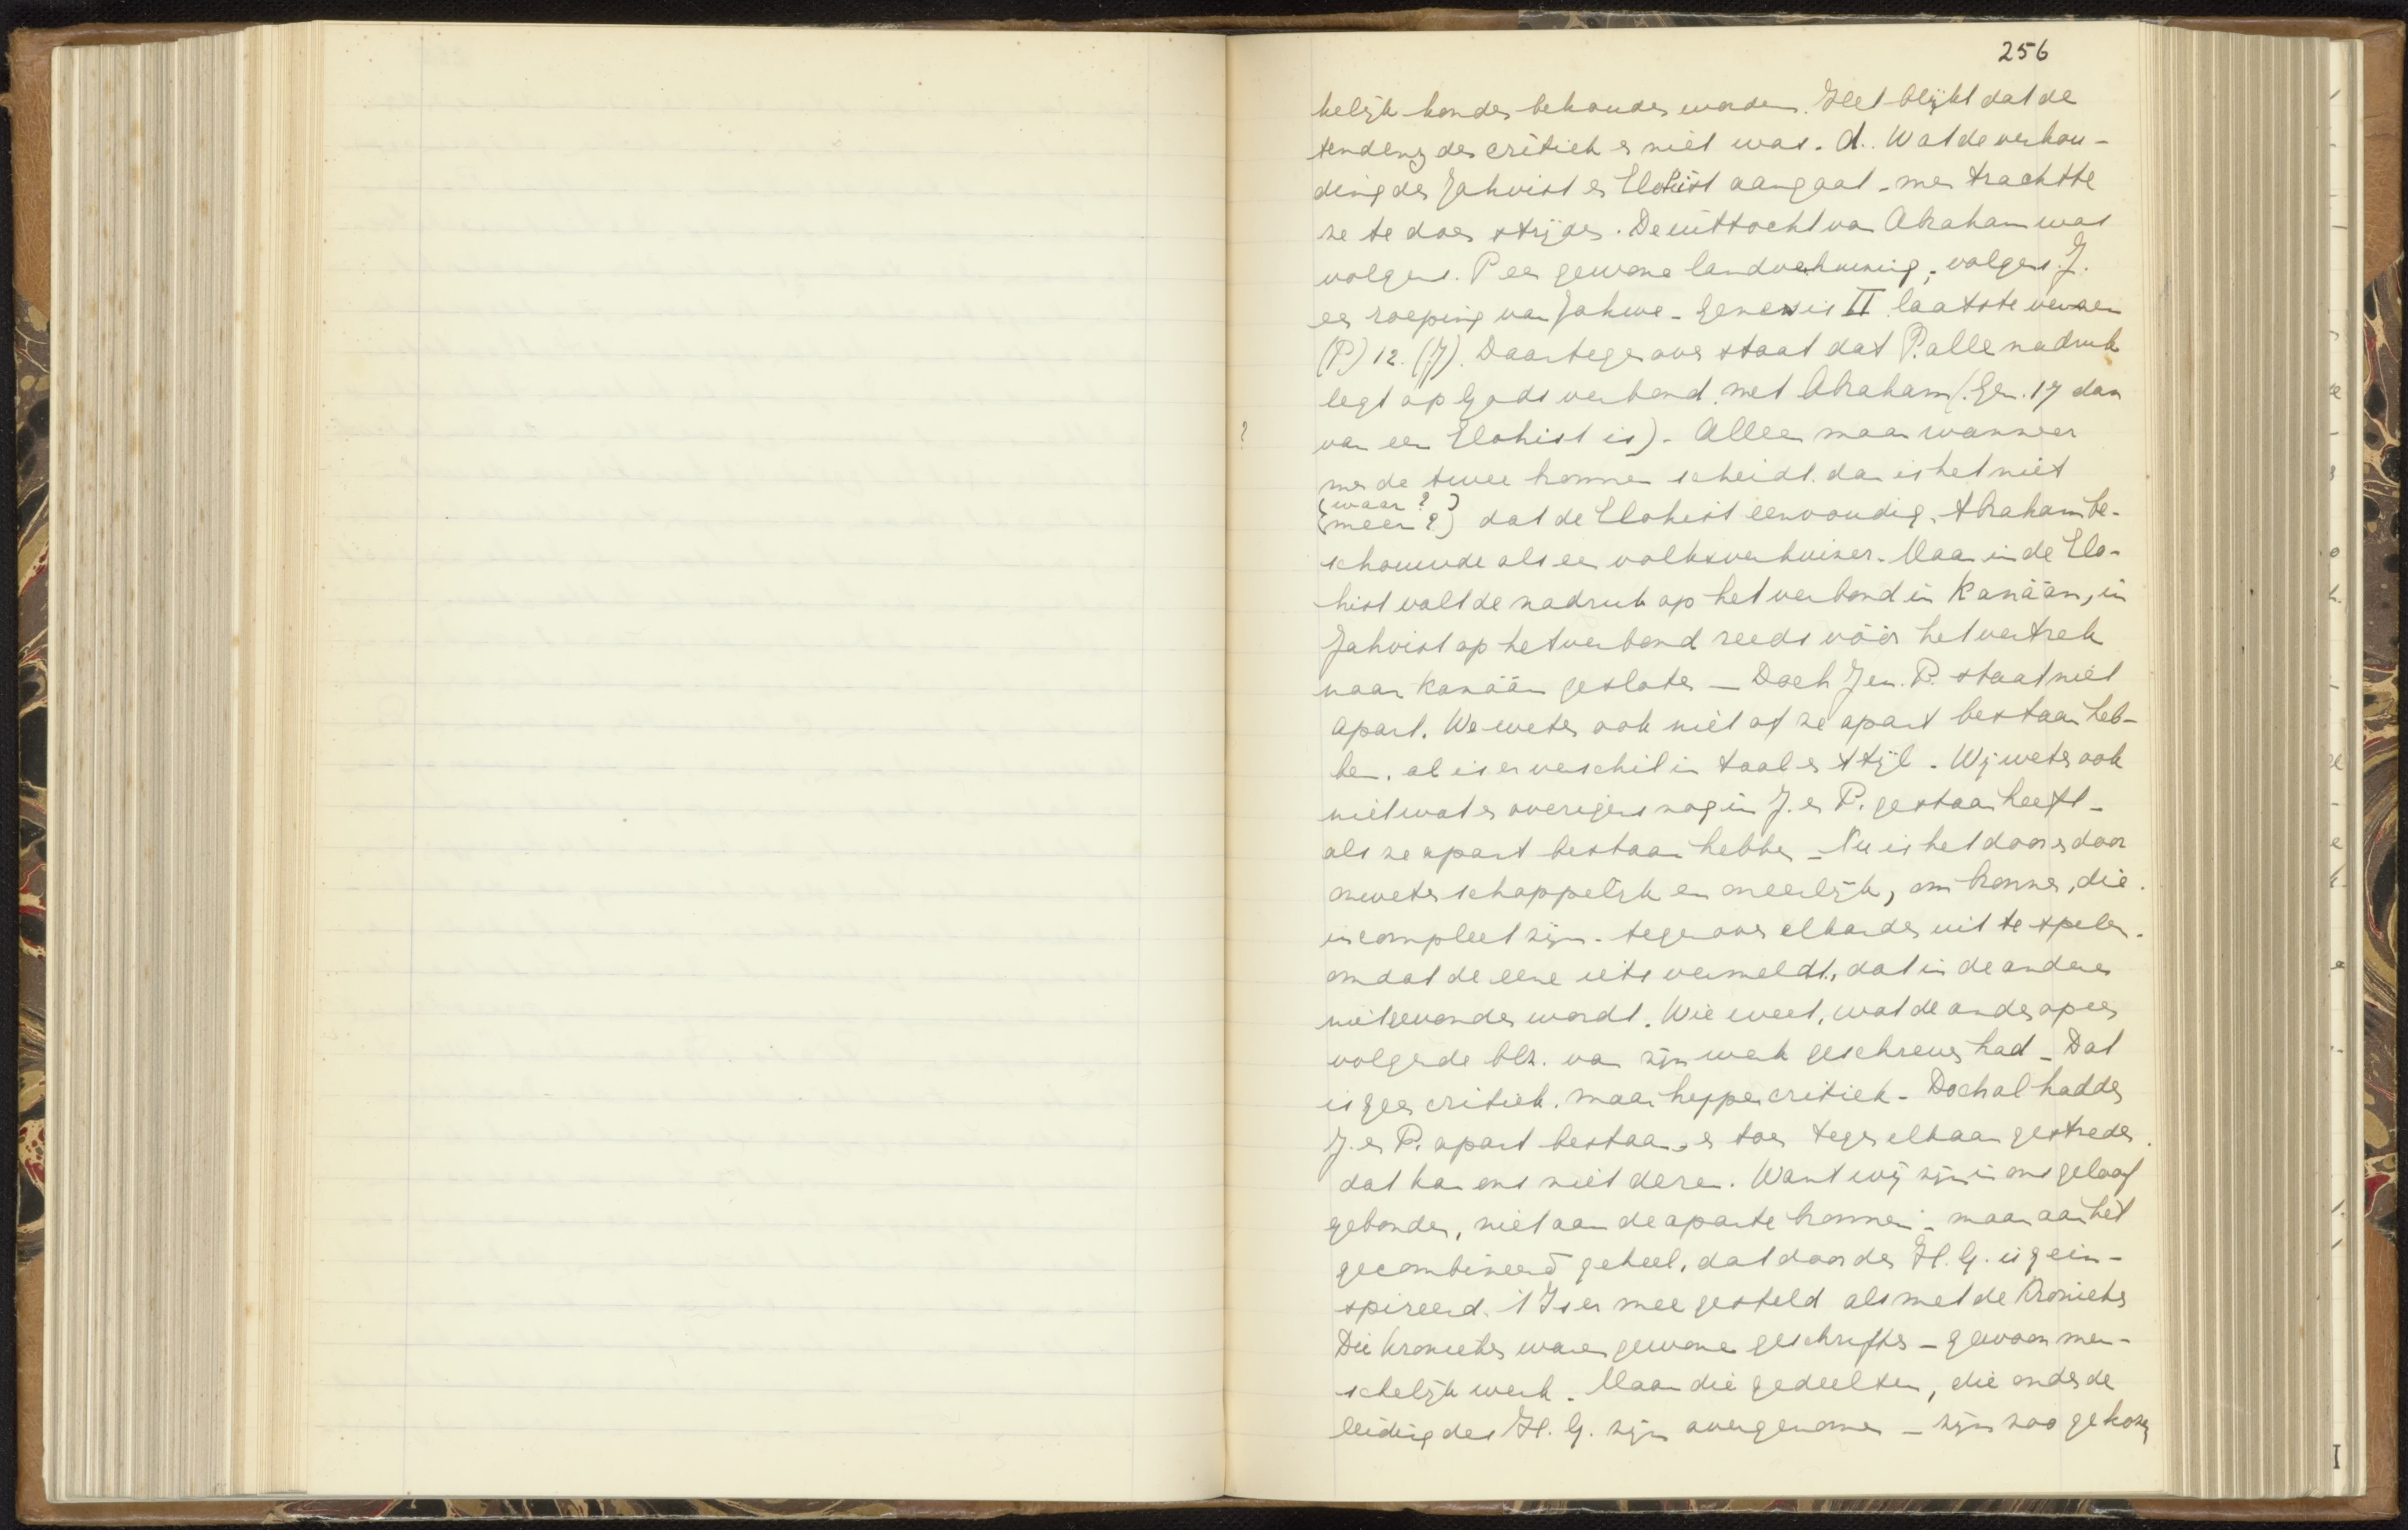 256
kelijk konden behouden worden. Het blijkt dat de
tendenz der critiek er niet was. d. Wat de verhou-
ding der Jahvist en Elohist aangaat - men trachtte
ze te doen strijden. De uittocht van Abraham was
volgens P een gewone landverhuizing, volgens J.
een roeping van Jahwe - Genesis II laatste verzen
(P) 12. (J). Daartegenover staat dat P. alle nadruk
legt op Gods verbond met Abraham (Gen. 17 dan
? van een Elohist is). Alleen maar wanneer
men de twee bronnen scheidt. dan is het niet
(waar ?)
(meer ?) dat de Elohist eenvoudig Abraham be-
schouwde als een volksverhuizer. Maar in de Elo-
hist valt de nadruk op het verbond in Kanaän, in
Jahvist op het verbond reeds vóór het vertrek
naar Kanaän gesloten - Doch J en P. staat niet
apart. We weten ook niet of ze apart bestaan heb-
ben. al is er verschil in taal en stijl. Wij weten ook
niet wat er overigens nog in J. en P. gestaan heeft -
als ze apart bestaan hebben - Nu is het door en door
onwetenschappelijk en oneerlijk, om bronnen, die
incompleet zijn - tegenover elkander uit te spelen.
omdat de eene iets vermeldt, dat in de andere
niet gevonden wordt. Wie weet, wat de ander op een
volgende blz. van zijn werk geschreven had - Dat
is geen critiek. maar hyppercritiek - Doch al hadden
J. en P. apart bestaan, en toen tegen elkaar gestreden
dat kan ons niet deren. Want wij zijn in ons geloof
gebonden, niet aan de aparte bronnen - maar aan het
gecombineerd geheel, dat door den H. G. is gein-
spireerd. 't Is er mee gesteld als met de Kronieken
Die kronieken waren gewone geschriften - gewoon men-
schelijk werk. Maar die gedeelten, die onder de
leiding des H. G. zijn overgenomen - zijn zoo gekozen